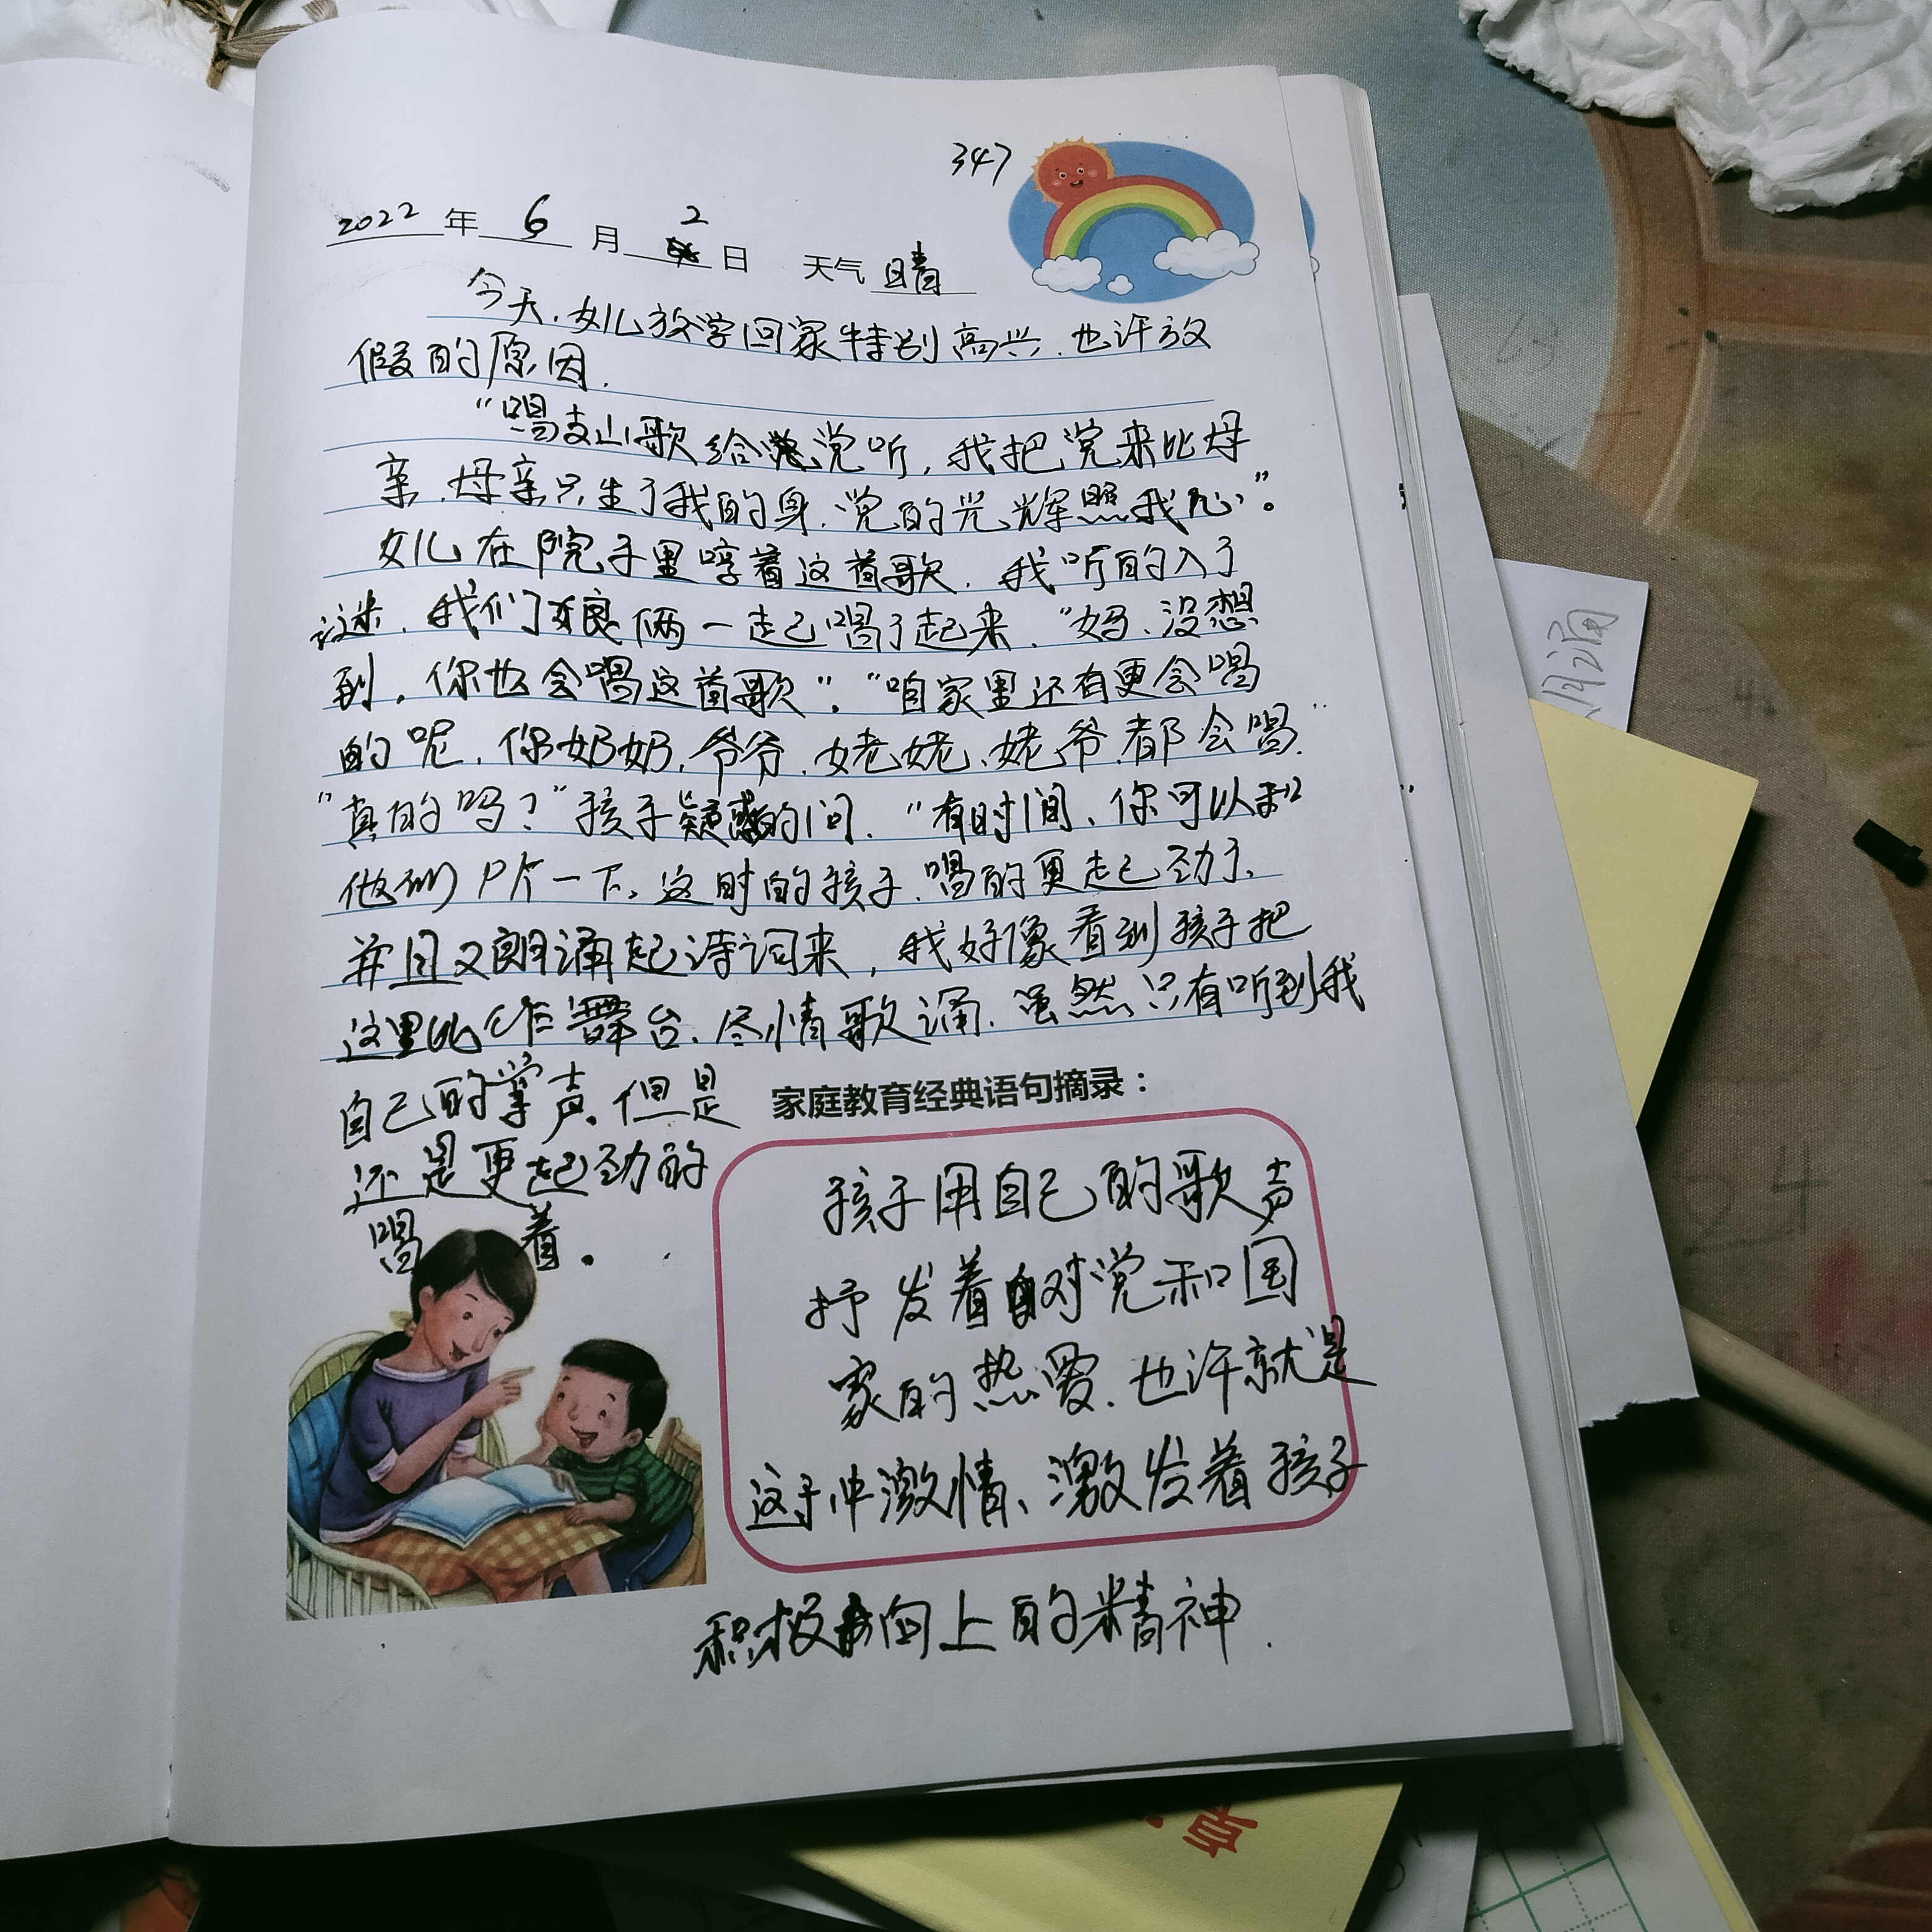 347
2022年6月2日 天气晴
今天,女儿放学回家特别高兴,也许放
假的原因.
“唱支山歌给党听,我把党来比母
亲,母亲只生了我的身,党的光辉照我心”。
女儿在院子里哼着这首歌,我听的入了
谜,我们娘俩一起唱了起来,“妈、没想
到,你也会唱这首歌”。“咱家里还有更会唱
的呢,你奶奶,爷爷,姥姥、姥爷,都会唱.”
“真的吗?”孩子疑惑的问.“有时间、你可以和
他们PK一下,这时的孩子,唱的更起劲了、
并且又朗诵起诗词来,我好像看到孩子把
这里比作舞台,尽情歌诵.虽然只有听到我
自己的掌声,但是
还是更起劲的
唱着。
家庭教育经典语句摘录:
孩子用自己的歌声
抒发着对党和国
家的热爱.也许就是
这种激情、激发着孩子
积极向上的精神.
章